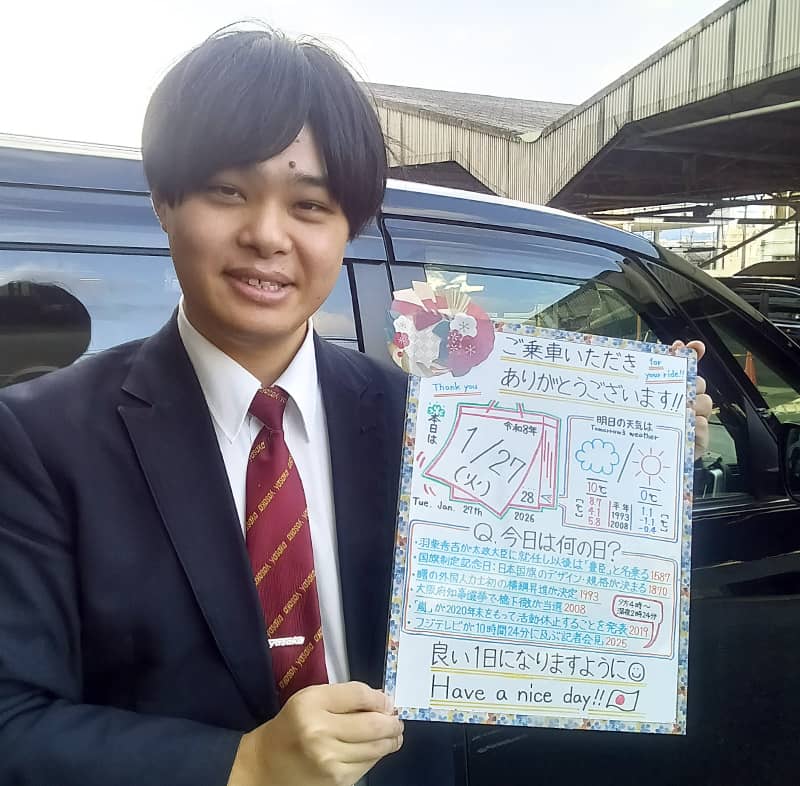 ご乗車いただき
for your ride!!
Thank you
ありがとうございます!!
本日は
令和8年
1/27
(火)
28
Tue. Jan. 27th 2026
明日の天気は
Tomorrow's weather
10℃ / 0℃
[℃] 8.7 平年 1.1 [℃]
4.1 1993 -1.1
5.8 2008 -0.4
Q.今日は何の日?
・羽柴秀吉が太政大臣に就任し以後は「豊臣」と名乗る1587
・国旗制定記念日:日本国旗のデザイン・規格が決まる1870
・曙の外国人力士初の横綱昇進が決定1993
・大阪府知事選挙で橋下徹が当選2008
・「嵐」が2020年末をもって活動休止することを発表2019
・フジテレビが10時間24分に及ぶ記者会見2025
夕方4時〜
深夜2時24分
良い1日になりますように
Have a nice day!!